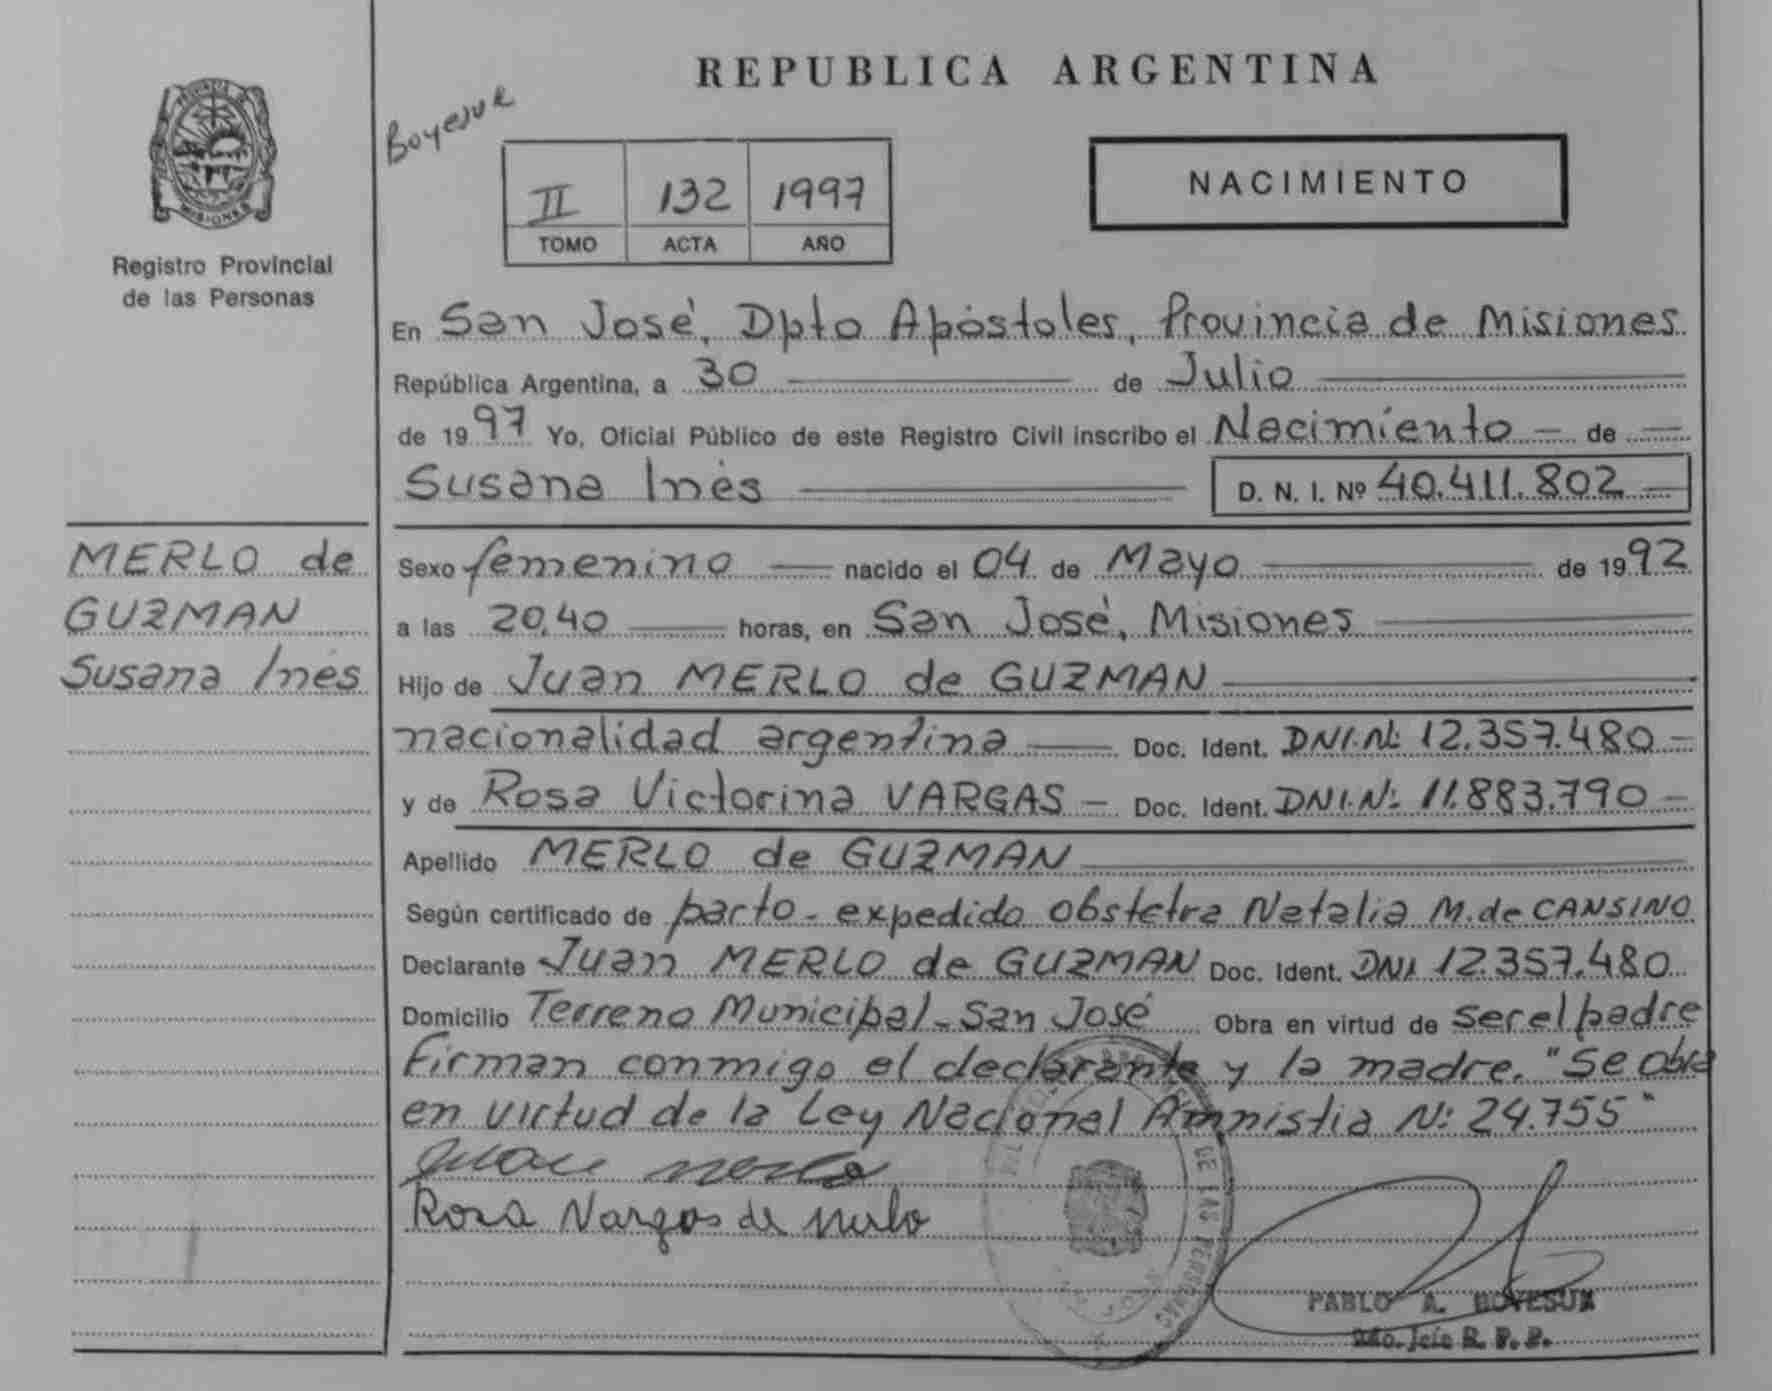 REPUBLICA ARGENTINA
Boyesuk
NACIMIENTO
II 132 1997
TOMO ACTA AÑO
PROVINCIA DE
MISIONES
Registro Provincial
de las Personas
En San José, Dpto Apóstoles, Provincia de Misiones
República Argentina, a 30 de Julio
de 1997 Yo, Oficial Público de este Registro Civil inscribo el Nacimiento - de
Susana Inés D. N. I. Nº 40.411.802
MERLO de
GUZMAN
Susana Inés
Sexo femenino nacido el 04 de Mayo de 1992
a las 20,40 horas, en San José, Misiones
Hijo de Juan MERLO de GUZMAN
nacionalidad argentina Doc. Ident. DNI.Nº 12.357.480 -
y de Rosa Victorina VARGAS - Doc. Ident. DNI.Nº 11.883.790 -
Apellido MERLO de GUZMAN
Según certificado de parto - expedido obstetra Natalia M. de CANSINO
Declarante Juan MERLO de GUZMAN Doc. Ident. DNI 12.357.480
Domicilio Terreno Municipal - San José Obra en virtud de ser el padre
Firman conmigo el declarante y la madre. "Se obra
en virtud de la Ley Nacional Amnistia Nº 24.755"
Juan Merlo
Rosa Vargas de Merlo
DE LAS PERSONAS
PABLO A. BOYESUK